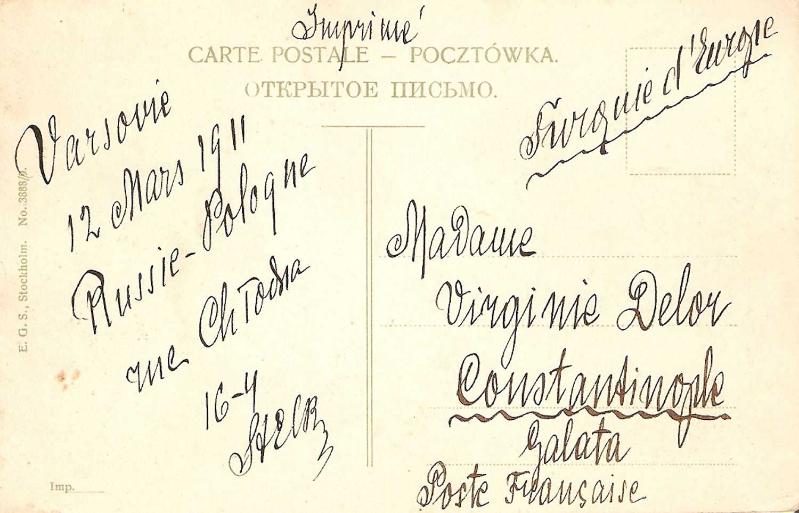 Imprimé
CARTE POSTALE — POCZTÓWKA.
ОТКРЫТОЕ ПИСЬМО.
Turquie d'Europe
Varsovie
12 Mars 1911
Russie-Pologne
rue Chłodna
16-4
Madame
Virginie Delor
Constantinople
Galata
Poste Française
E. G. S., Stockholm. No. 3888/9.
Imp.